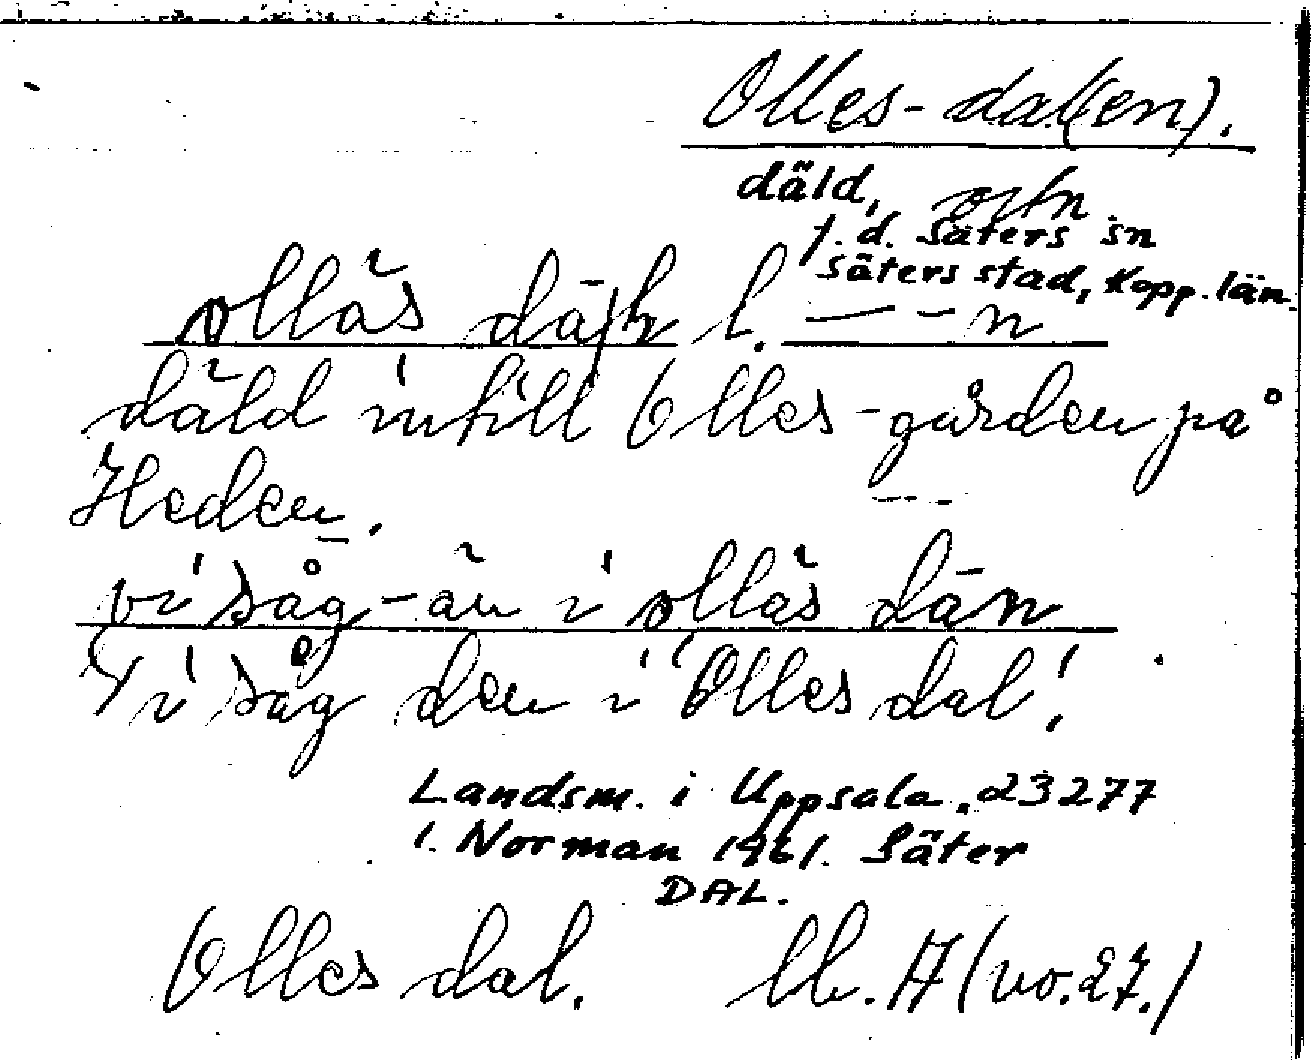 Olles-dal(en).
däld, ortn
f.d. Säters sn
Säters stad, Kopp. län.
olläs l. — – n
däld intill Olles-gården på
Heden.
vi såg-än i olläs dän
"vi såg den i Olles dal!
Landsm. i Uppsala. 23277
I. Norman 1961. Säter
DAL.
Olles dal. lb. A (no. 27.)